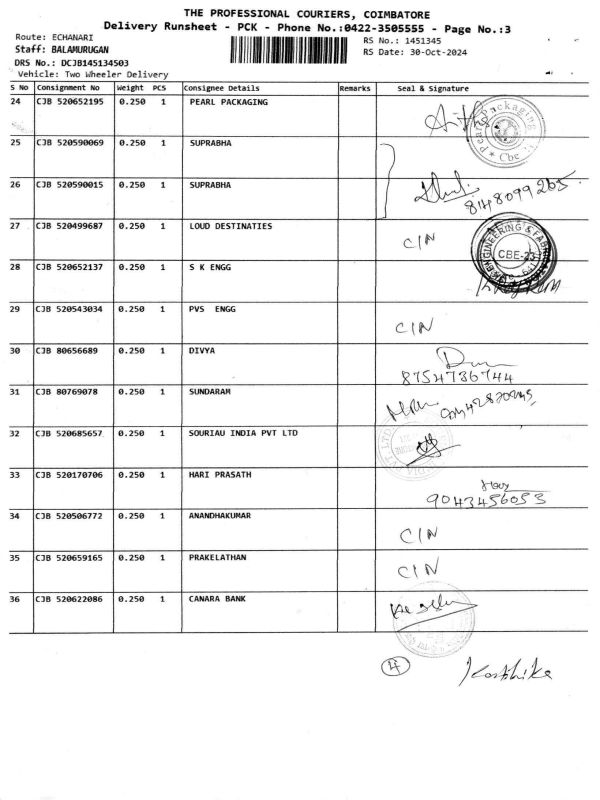 THE PROFESSIONAL COURIERS, COIMBATORE
Delivery Runsheet - PCK - Phone No.:0422-3505555 - Page No.:3
Route: ECHANARI
RS No.: 1451345
Staff: BALAMURUGAN
RS Date: 30-Oct-2024
DRS No.: DCJB145134503
Vehicle: Two Wheeler Delivery
S No Consignment No Weight PCS Consignee Details Remarks Seal & Signature
24 CJB 520652195 0.250 1 PEARL PACKAGING
Pearl Packaging * Cbe
25 CJB 520590069 0.250 1 SUPRABHA
26 CJB 520590015 0.250 1 SUPRABHA
8148099265
27 CJB 520499687 0.250 1 LOUD DESTINATIES CIN
ENGINEERING & FABRICATION
CBE-23
28 CJB 520652137 0.250 1 S K ENGG
29 CJB 520543034 0.250 1 PVS ENGG CIN
30 CJB 80656689 0.250 1 DIVYA
8754736744
31 CJB 80769078 0.250 1 SUNDARAM
32 CJB 520685657 0.250 1 SOURIAU INDIA PVT LTD
33 CJB 520170706 0.250 1 HARI PRASATH
9043456053
34 CJB 520506772 0.250 1 ANANDHAKUMAR CIN
35 CJB 520659165 0.250 1 PRAKELATHAN CIN
36 CJB 520622086 0.250 1 CANARA BANK
4 Karthika